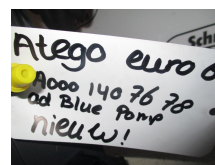 Atego euro 6
A000 140 76 78
ad Blue Pomp
nieuw!
Sch